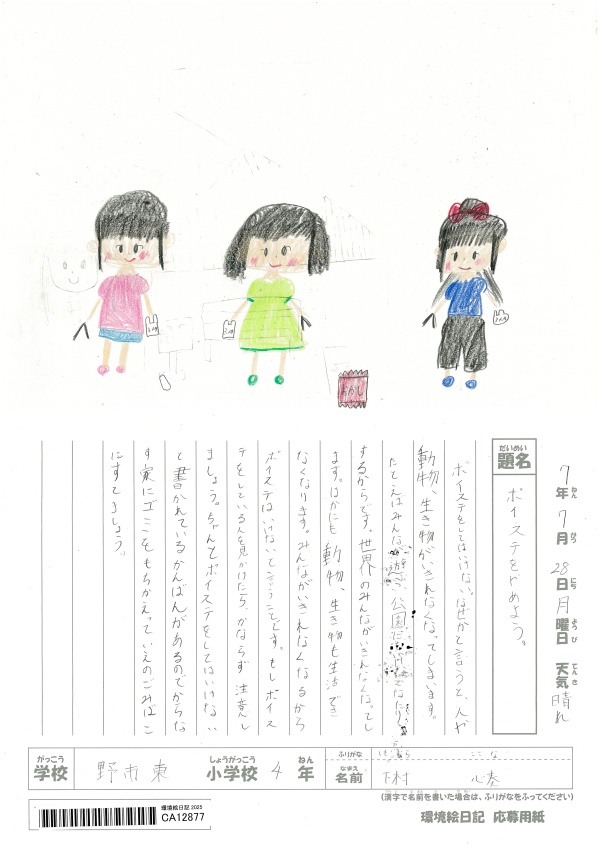 ゴミ
ゴミ
おかし
7年7月28日月曜日 天気晴れ
ねん がつ にち ようび てんき
だいめい
題名
ポイステをやめよう。
ポイステをしてはいけない。なぜかと言うと、人や
動物、生き物がいきれなくなってしまいます。
たとえばみんな
するからです。世界のみんながいきれなくなってし
ます。ほかにも動物、生き物も生活でき
なくなります。みんながいきれなくなるから
ポイステはいけないて言うことです。もしポイス
テをしている人を見かけたら、かならず注意し
ましょう。ちゃんとポイステをしてはいけない
と書かれているかんばんがあるのでかならな
ず家にゴミをもちかえっていえのごみばこ
にすてましょう。
がっこう
学校
野市東
しょうがっこう
小学校
4
ねん
年
ふりがな
ここな
なまえ
名前
下村
(漢字で名前を書いた場合は、ふりがなをふってください)
環境絵日記 2025
CA12877
環境絵日記 応募用紙